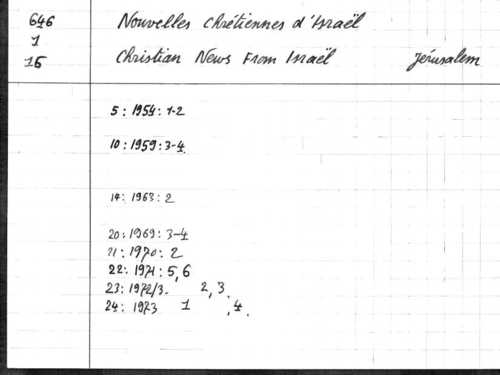 646
1
15
Nouvelles Chrétiennes d'Israël
Christian News From Israël Jérusalem
5 : 1954 : 1-2
10 : 1959 : 3-4
14 : 1963 : 2
20 : 1969 : 3-4
21 : 1970 : 2
22 : 1971 : 5, 6
23 : 1972/3. 2, 3,
24 : 1973 1 , 4.